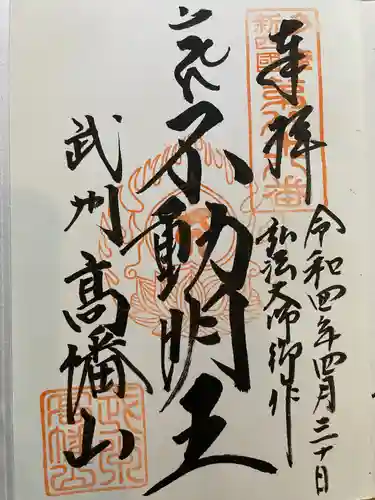 奉拝
令和四年四月三十日
弘法大師御作
不動明王
武州
高幡山